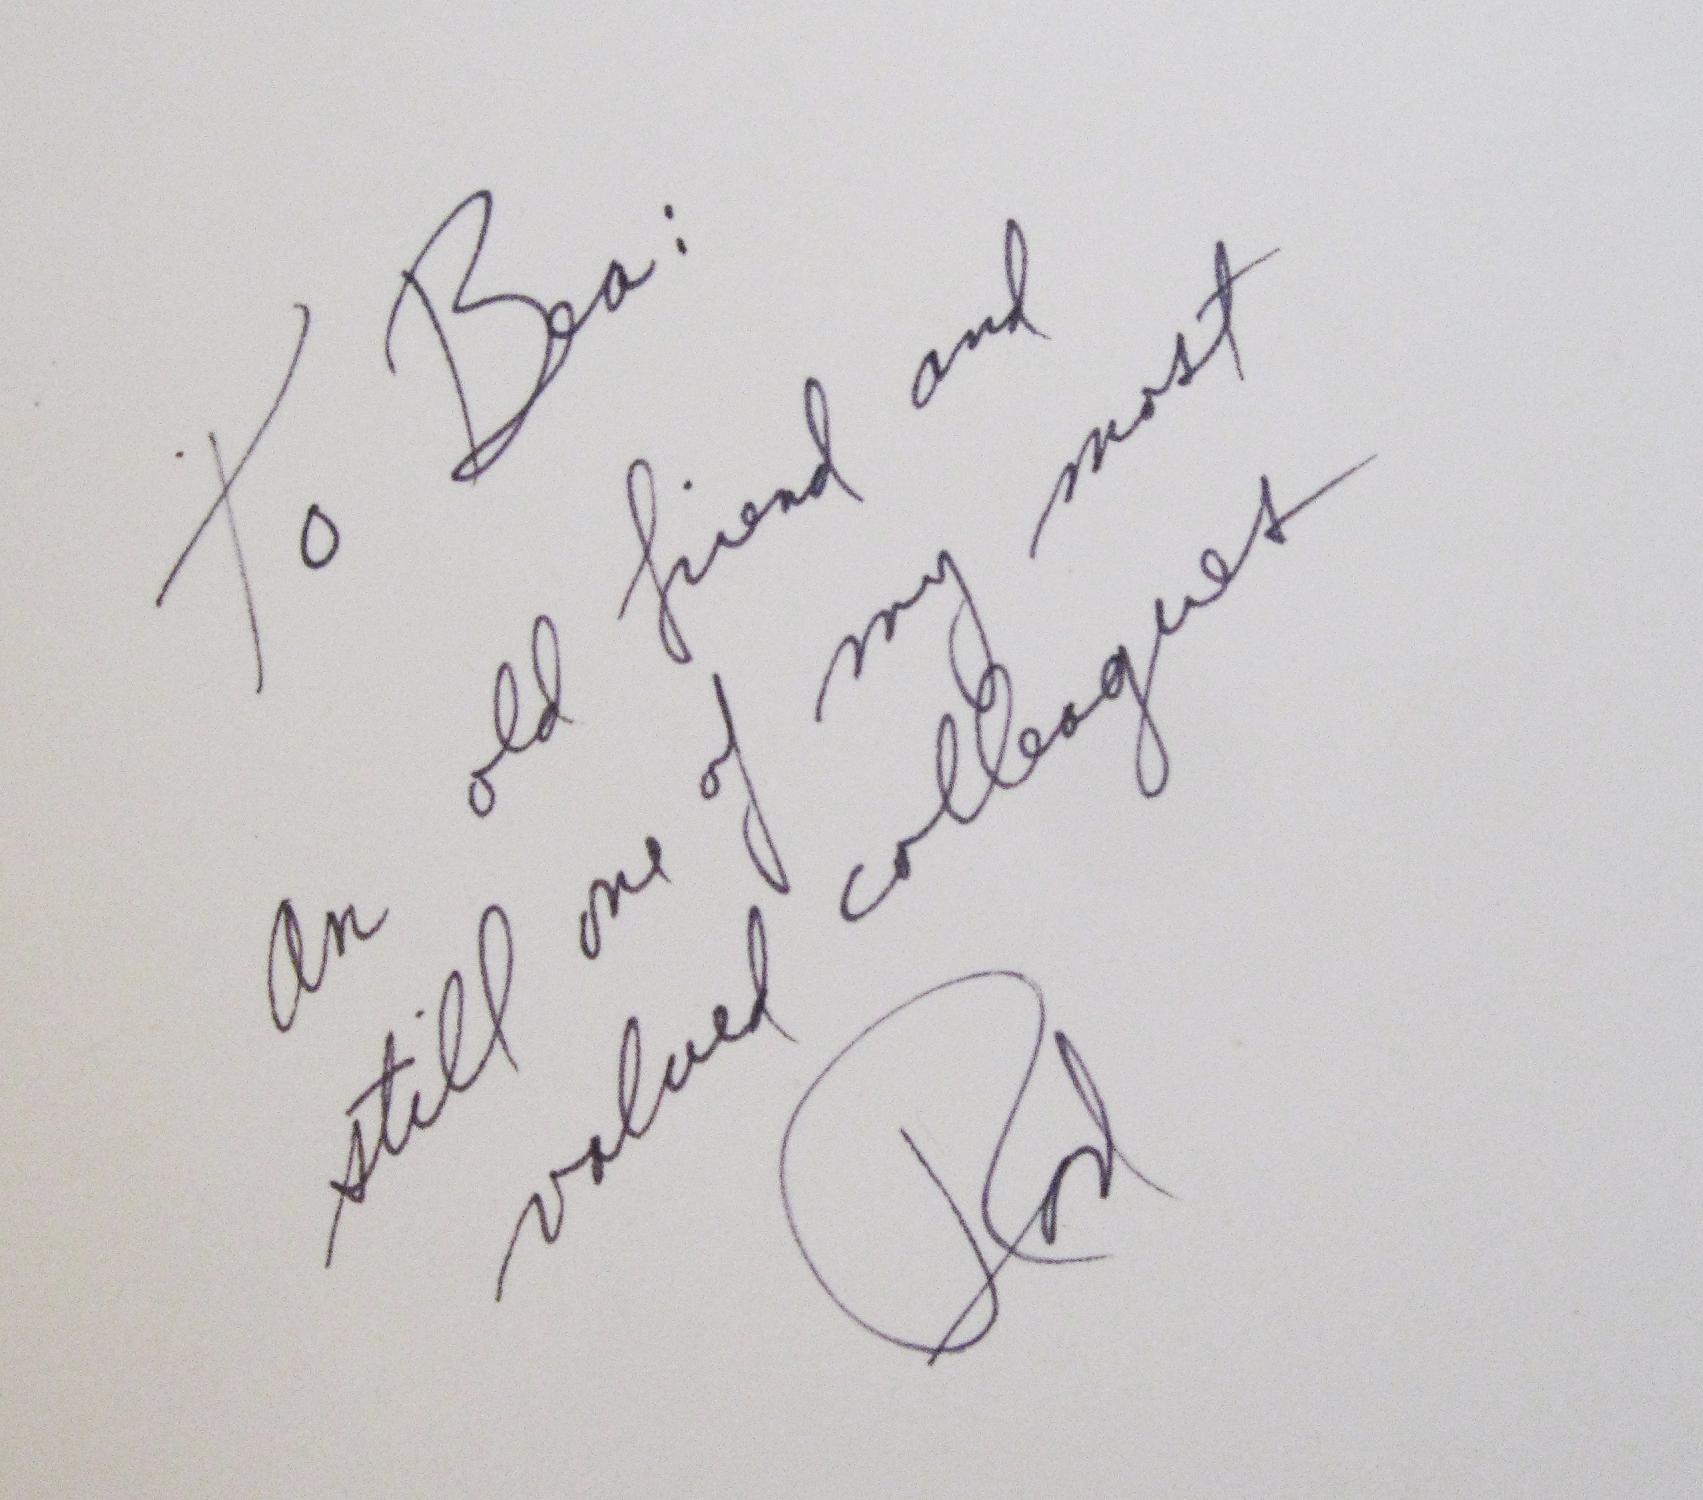 To Bea:
An old friend and
still one of my most
valued colleagues
Rod